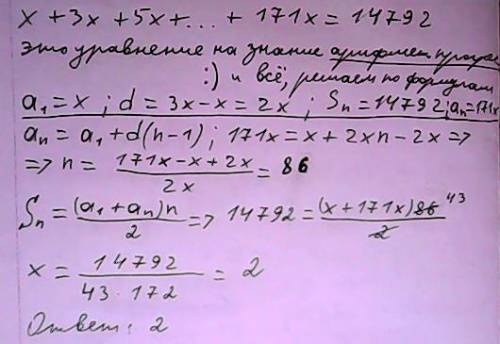 x + 3x + 5x + ... + 171x = 14792
это уравнение на знание арифмет. прогрес
:) и всё, решаем по формулам
a₁ = x ; d = 3x - x = 2x ; Sₙ = 14792 ; aₙ = 171x
aₙ = a₁ + d(n-1) ; 171x = x + 2xn - 2x =>
=> n = (171x - x + 2x) / 2x = 86
Sₙ = (a₁ + aₙ)n / 2 => 14792 = (x + 171x)86 43 / 2
x = 14792 / (43 · 172) = 2
Ответ: 2